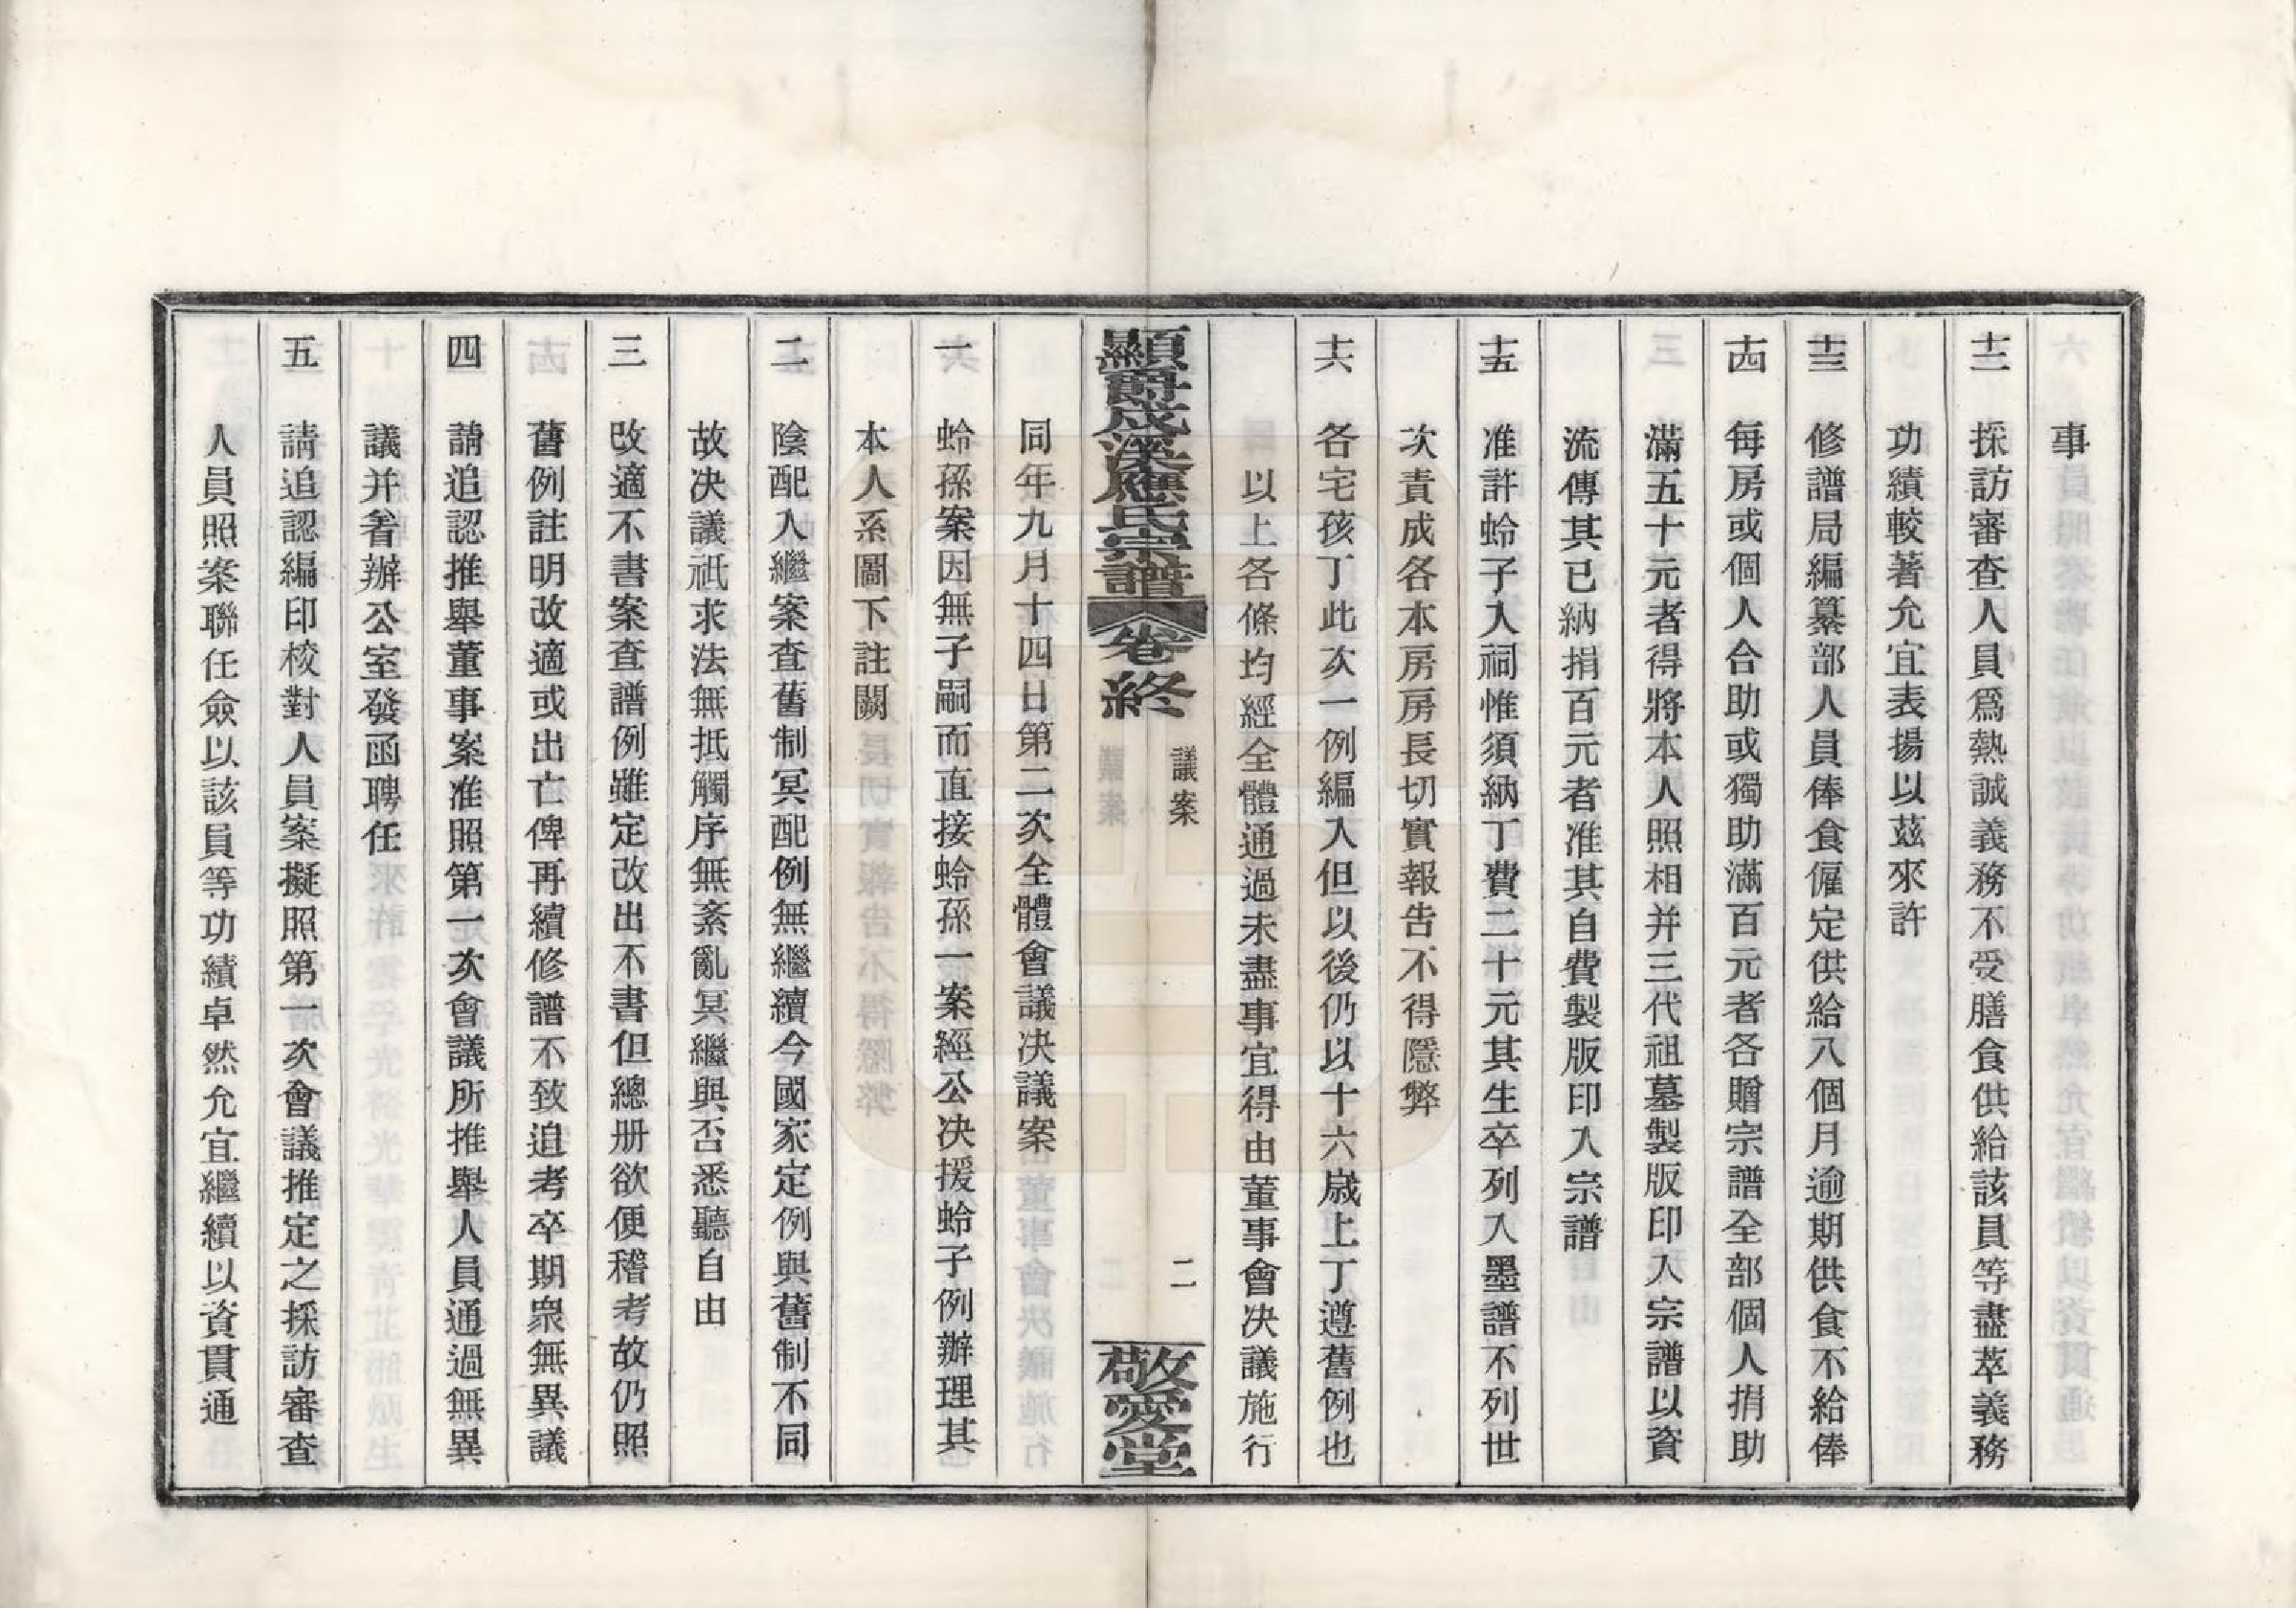 事
十二 採訪審查人員爲熱誠義務不受膳食供給該員等盡萃義務
功績較著允宜表揚以茲來許
十三 修譜局編纂部人員俸食僱定供給八個月逾期供食不給俸
十四 每房或個人合助或獨助滿百元者各贈宗譜全部個人捐助
滿五十元者得將本人照相并三代祖墓製版印入宗譜以資
流傳其已納捐百元者准其自費製版印入宗譜
十五 准許蛉子入祠惟須納丁費二十元其生卒列入墨譜不列世
次責成各本房房長切實報告不得隱弊
十六 各宅孩丁此次一例編入但以後仍以十六歲上丁遵舊例也
以上各條均經全體通過未盡事宜得由董事會决議施行
顯爵成溪應氏宗譜 卷終 議案 二 敬愛堂
同年九月十四日第二次全體會議决議案
一 蛉孫案因無子嗣而直接蛉孫一案經公决援蛉子例辦理其
本人系圖下註闕
二 陰配入繼案查舊制冥配例無繼續今國家定例與舊制不同
故决議祇求法無抵觸序無紊亂冥繼與否悉聽自由
三 改適不書案查譜例雖定改出不書但總册欲便稽考故仍照
舊例註明改適或出亡俾再續修譜不致追考卒期衆無異議
四 請追認推舉董事案准照第一次會議所推舉人員通過無異
議并着辦公室發函聘任
五 請追認編印校對人員案擬照第一次會議推定之採訪審查
人員照案聯任僉以該員等功績卓然允宜繼續以資貫通